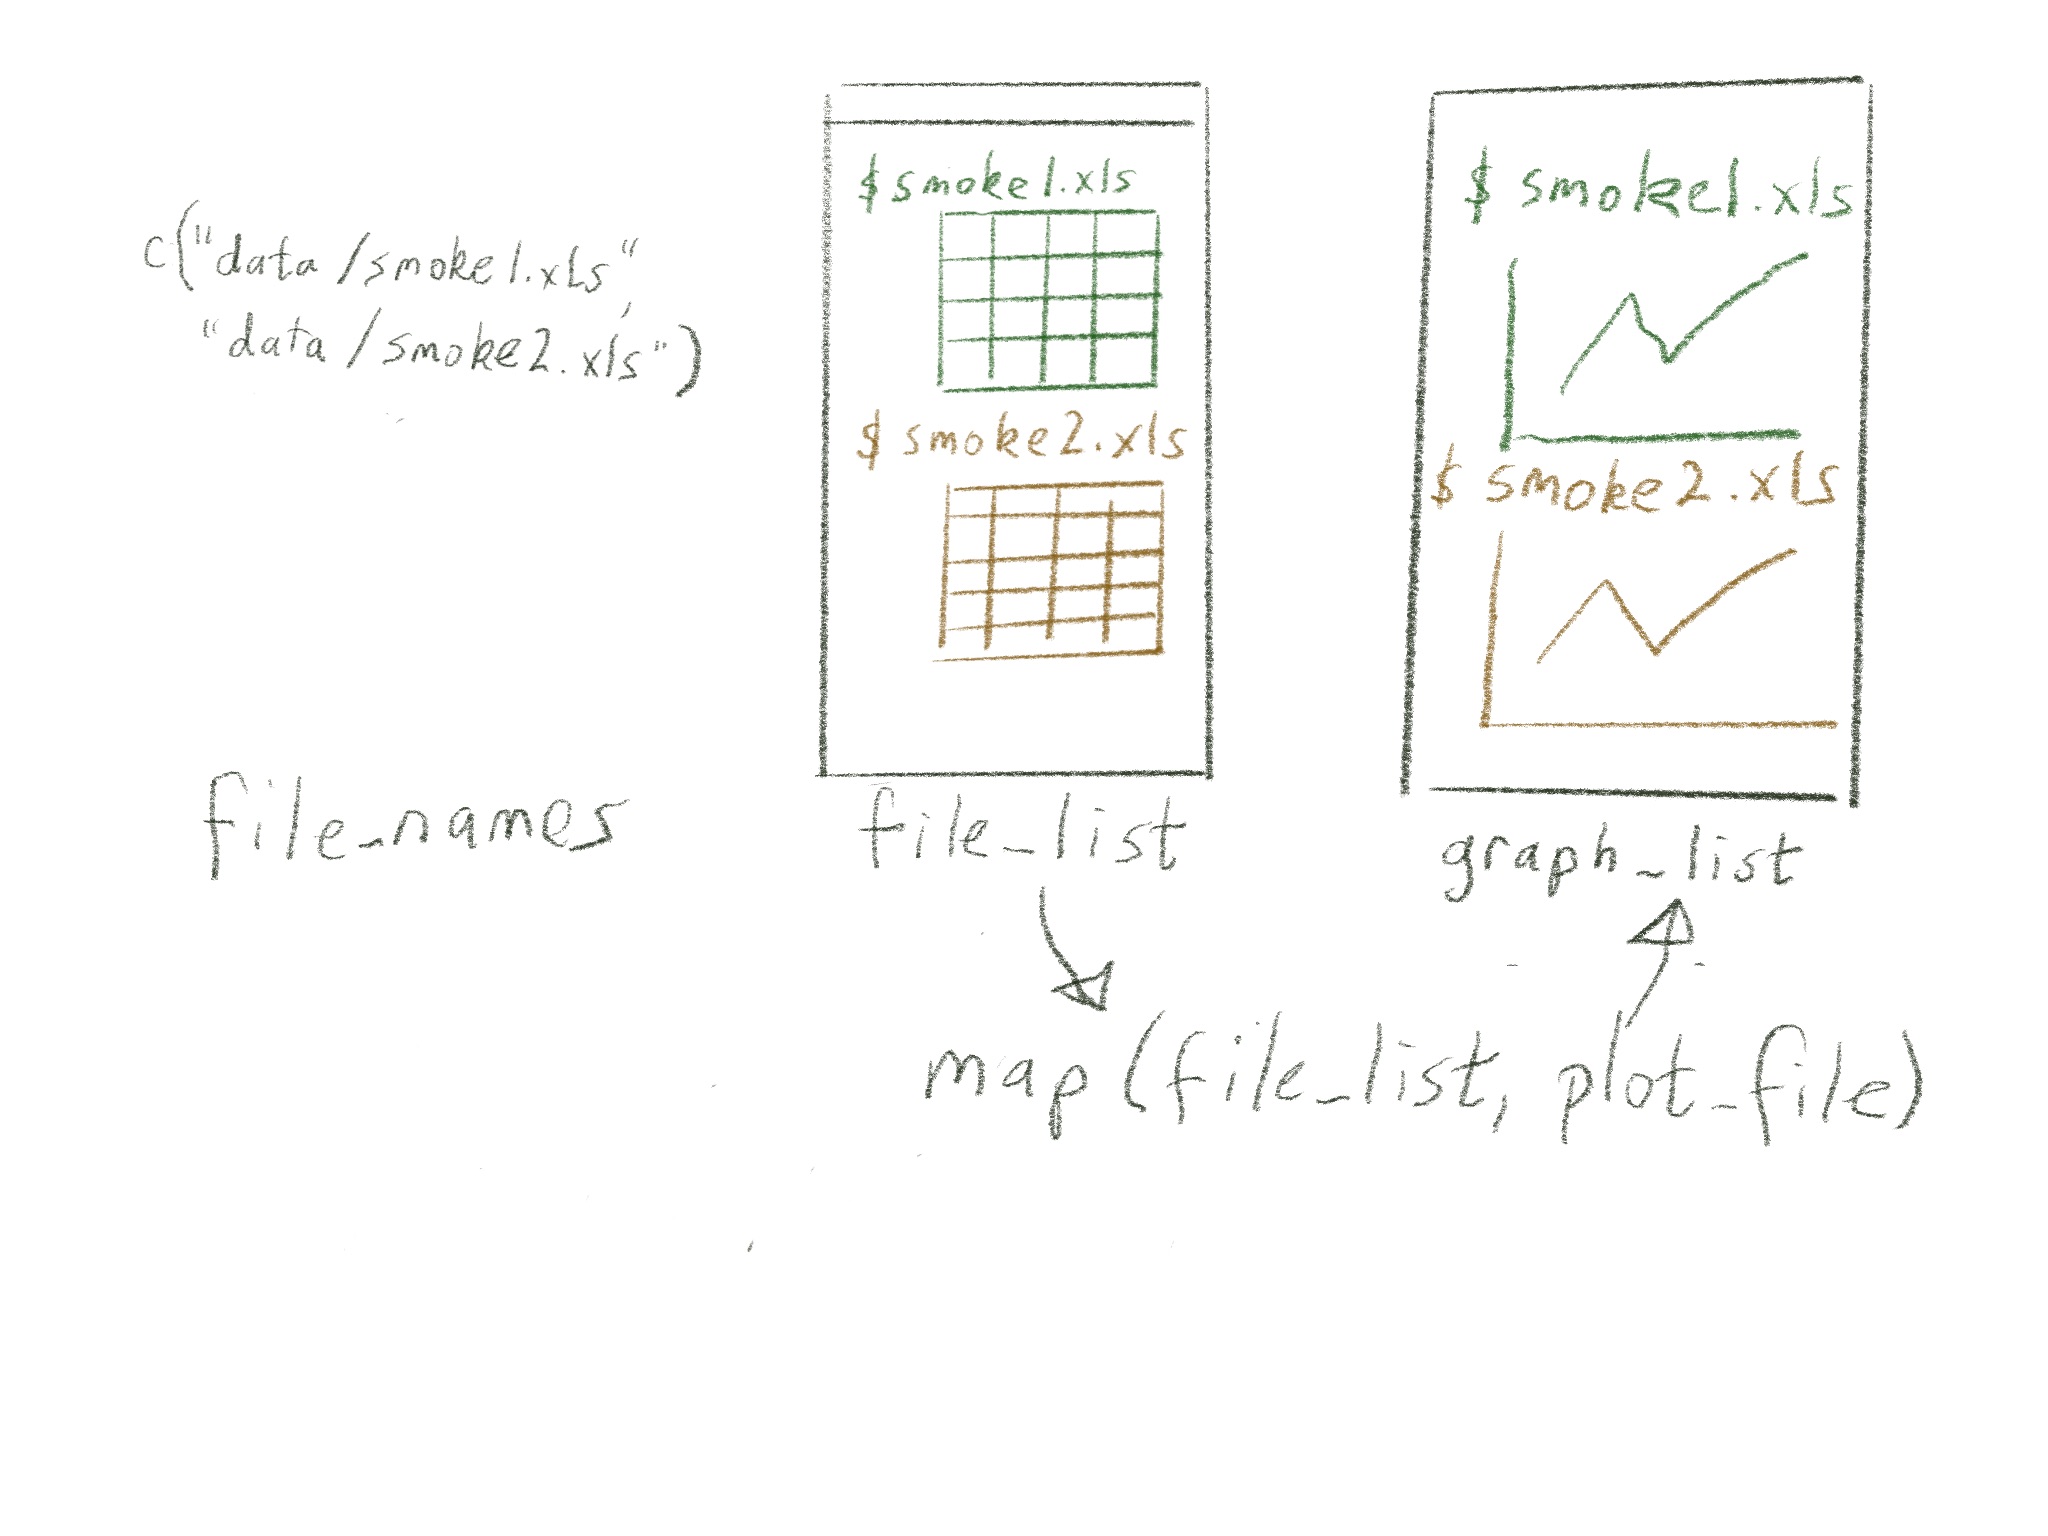 c("data/smoke1.xls",
"data/smoke2.xls")
file_names
$ smoke1.xls
$ smoke2.xls
file_list
$ smoke1.xls
$ smoke2.xls
graph_list
map(file_list, plot_file)